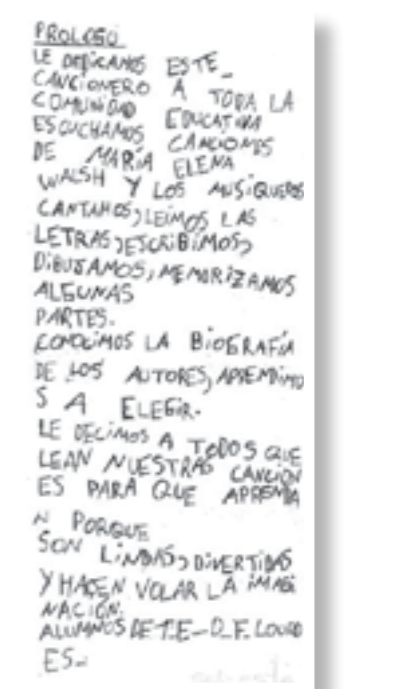 PROLOGO
LE DEDICAMOS ESTE_
CANCIONERO A TODA LA
COMUNIDAD EDUCATIVA
ESCUCHAMOS CANCIONES
DE MARÍA ELENA
WALSH Y LOS MUSIQUEROS
CANTAMOS, LEIMOS LAS
LETRAS, ESCRIBIMOS,
DIBUJAMOS, MEMORIZAMOS
ALGUNAS
PARTES.
CONOCIMOS LA BIOGRAFÍA
DE LOS AUTORES, APRENDIMO
S A ELEGIR.
LE DECIMOS A TODOS QUE
LEAN NUESTRAS CANCION
ES PARA QUE APRENDA
N PORQUE
SON LINDAS, DIVERTIDAS
Y HACEN VOLAR LA IMAGI
NACIÓN.
ALUMNOS DE T.E-D.F. LOURD
ES-